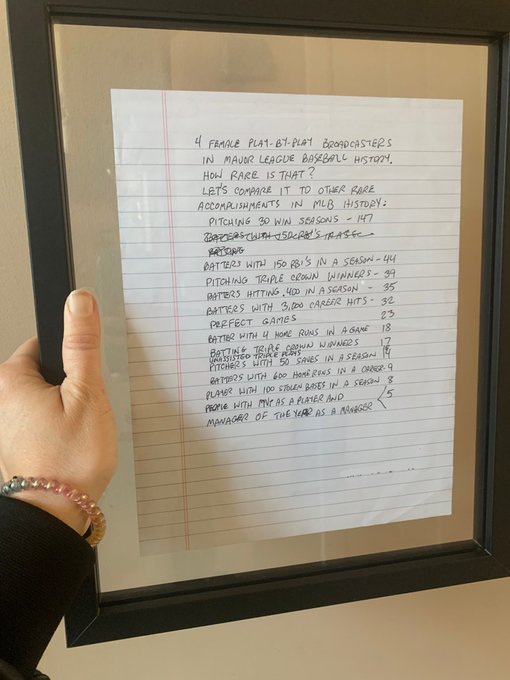 4 FEMALE PLAY-BY-PLAY BROADCASTERS
IN MAJOR LEAGUE BASEBALL HISTORY.
HOW RARE IS THAT?
LET'S COMPARE IT TO OTHER RARE
ACCOMPLISHMENTS IN MLB HISTORY:
PITCHING 30 WIN SEASONS - 147
BATTERS WITH 150 RBI'S IN A
BATTERS WITH 150 RBI'S IN A SEASON - 44
PITCHING TRIPLE CROWN WINNERS - 39
BATTERS HITTING .400 IN A SEASON - 35
BATTERS WITH 3,000 CAREER HITS - 32
PERFECT GAMES 23
BATTER WITH 4 HOME RUNS IN A GAME 18
BATTING TRIPLE CROWN WINNERS 17
UNASSISTED TRIPLE PLAYS
PITCHERS WITH 50 SAVES IN A SEASON
BATTERS WITH 600 HOME RUNS IN A CAREER - 9
PLAYER WITH 100 STOLEN BASES IN A SEASON 8
PEOPLE WITH MVP AS A PLAYER AND
MANAGER OF THE YEAR AS A MANAGER 5